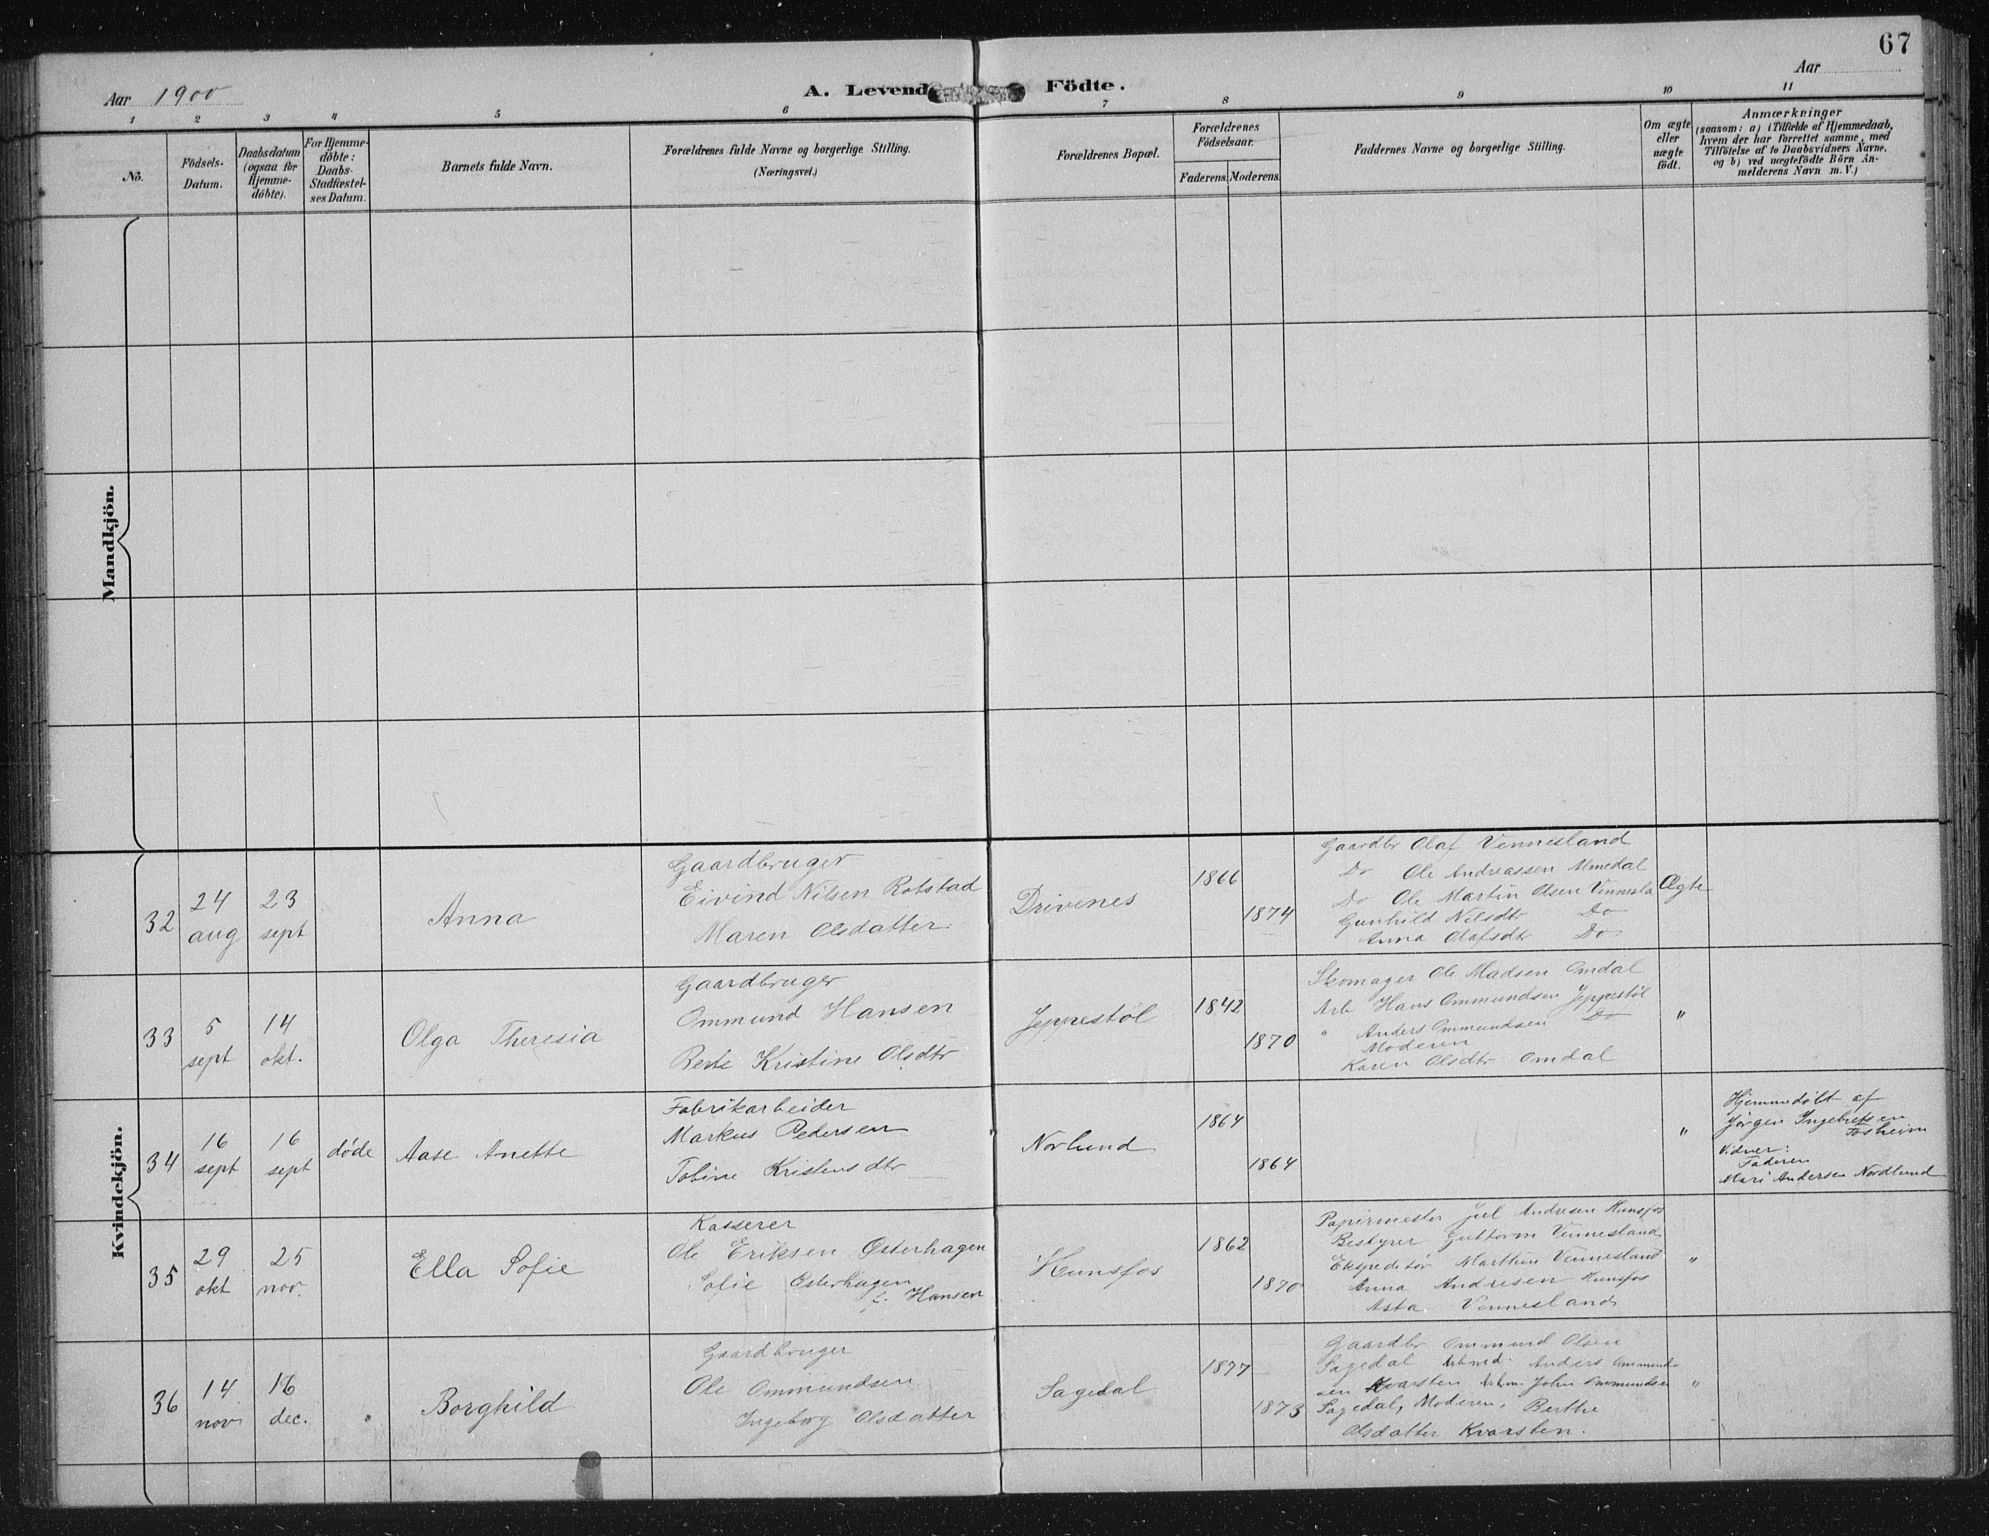 67
Aar 1900
A. Levende Födte.
Aar
1 2 3 4 5 6 7 8 9 10 11
No.
Födsels-Datum.
Daabsdatum (ogsaa for Hjemme-döbte).
For Hjemme-döbte: Daabs-Stadfæstel-ses Datum.
Barnets fulde Navn.
Forældrenes fulde Navne og borgerlige Stilling.
(Næringsvei.)
Forældrenes Bopæl.
Forældrenes Födselsaar.
Faderens. Moderens.
Faddernes Navne og borgerlige Stilling.
Om ægte eller uægte födt.
Anmærkninger
(saasom: a) i Tilfælde af Hjemmedaab,
hvem der har forrettet samme, med
Tilföielse af to Daabsvidners Navne,
og b) ved uægtefödte Börn An-
melderens Navn m. V.)
Mandkjön.
Kvindekjön.
32
24 aug
23 sept
Anna
Gaardbruger
Eivind Nilsen Rotstad
Maren Olsdatter
Drivenes
1866
1874
Gaardbr Olaf Vennesland
Do Ole Andreassen Almedal
Do Ole Martin Olsen Vennesla
Gunhild Nilsdtr Do
Anna Olafsdtr Do
Ægte
33
5 sept
14 okt.
Olga Theresia
Gaardbruger
Ommund Hansen
Berte Kristine Olsdtr
Jeppestøl
1842
1870
Skomager Ole Madsen Omdal
Arb Hans Ommundsen Jeppestøl
" Anders Ommundsen Do
Moderen
Karen Olsdtr Omdal
"
34
16 sept
16 sept
døde
Aase Anette
Fabrikarbeider
Markus Pedersen
Tobine Kristensdtr
Norlund
1864
1864
"
Hjemmedøbt af
Jørgen Ingebretsen
Fosheim
Vidner:
Faderen
Mari Andersen Nordlund
35
29 okt
25 nov.
Ella Sofie
Kasserer
Ole Eriksen Østerhagen
Sofie Østerhagen
f. Hansen
Hunsfos
1862
1870
Papirmester Juel Andresen Hunsfos
Bestyrer Guttorm Vennesland
Ekspeditør Marthin Vennesland
Anna Andresen Hunsfos
Asta Vennesland
"
36
14 nov
16 dec.
Borghild
Gaardbruger
Ole Ommundsen
Ingeborg Olsdatter
Sagedal
1877
1873
Gaardbr Ommund Olsen
Sagedal Arbmd. Anders Ommund-
sen Kvarsten Arbm. John Ommundsen
Sagedal, Moderen, Berthe
Olsdatter Kvarsten.
"